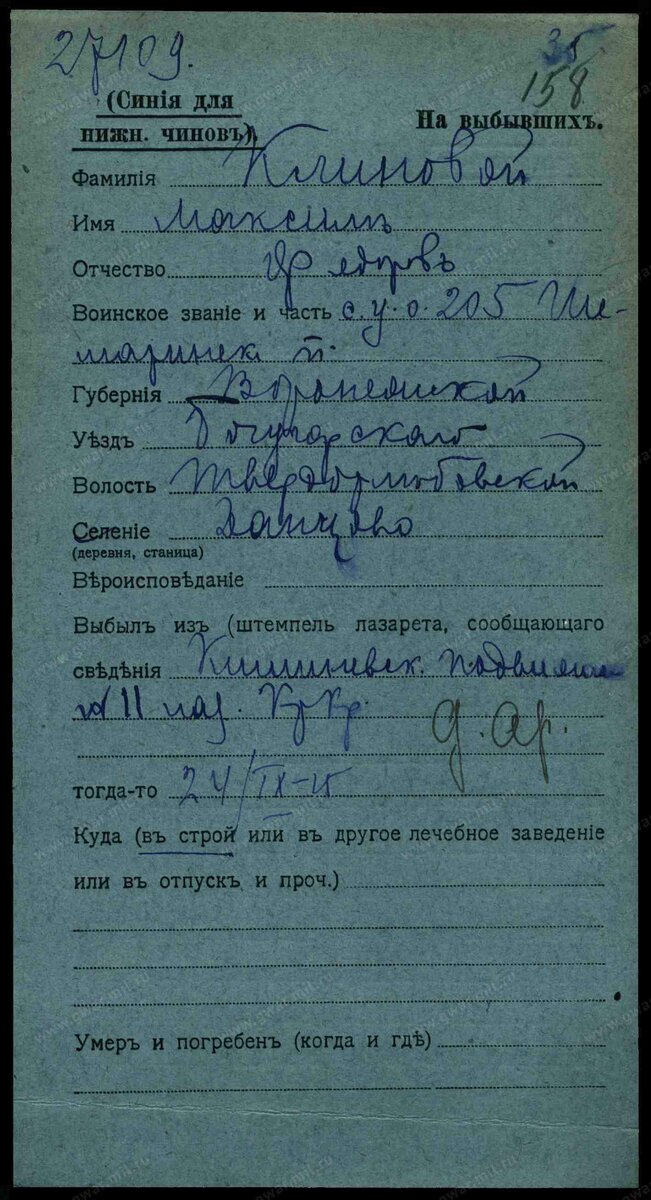 27109.
35
158
(Синія для
нижн. чиновъ)
На выбывшихъ.
Фамилія Климовой
Имя Максимъ
Отчество Федоровъ
Воинское званіе и часть с. у. о. 205 Ше-
маринск п.
Губернія Воронежской
Уѣздъ Богучарского
Волость Твердохлѣбовской
Селеніе Данцево
(деревня, станица)
Вѣроисповѣданіе
Выбылъ изъ (штемпель лазарета, сообщающаго
свѣдѣнія Кишиневск. подвижн
11 лаз. Кр Кр.
д. ар.
тогда-то 24/IX-15
Куда (въ строй или въ другое лечебное заведеніе
или въ отпускъ и проч.)
Умеръ и погребенъ (когда и гдѣ)